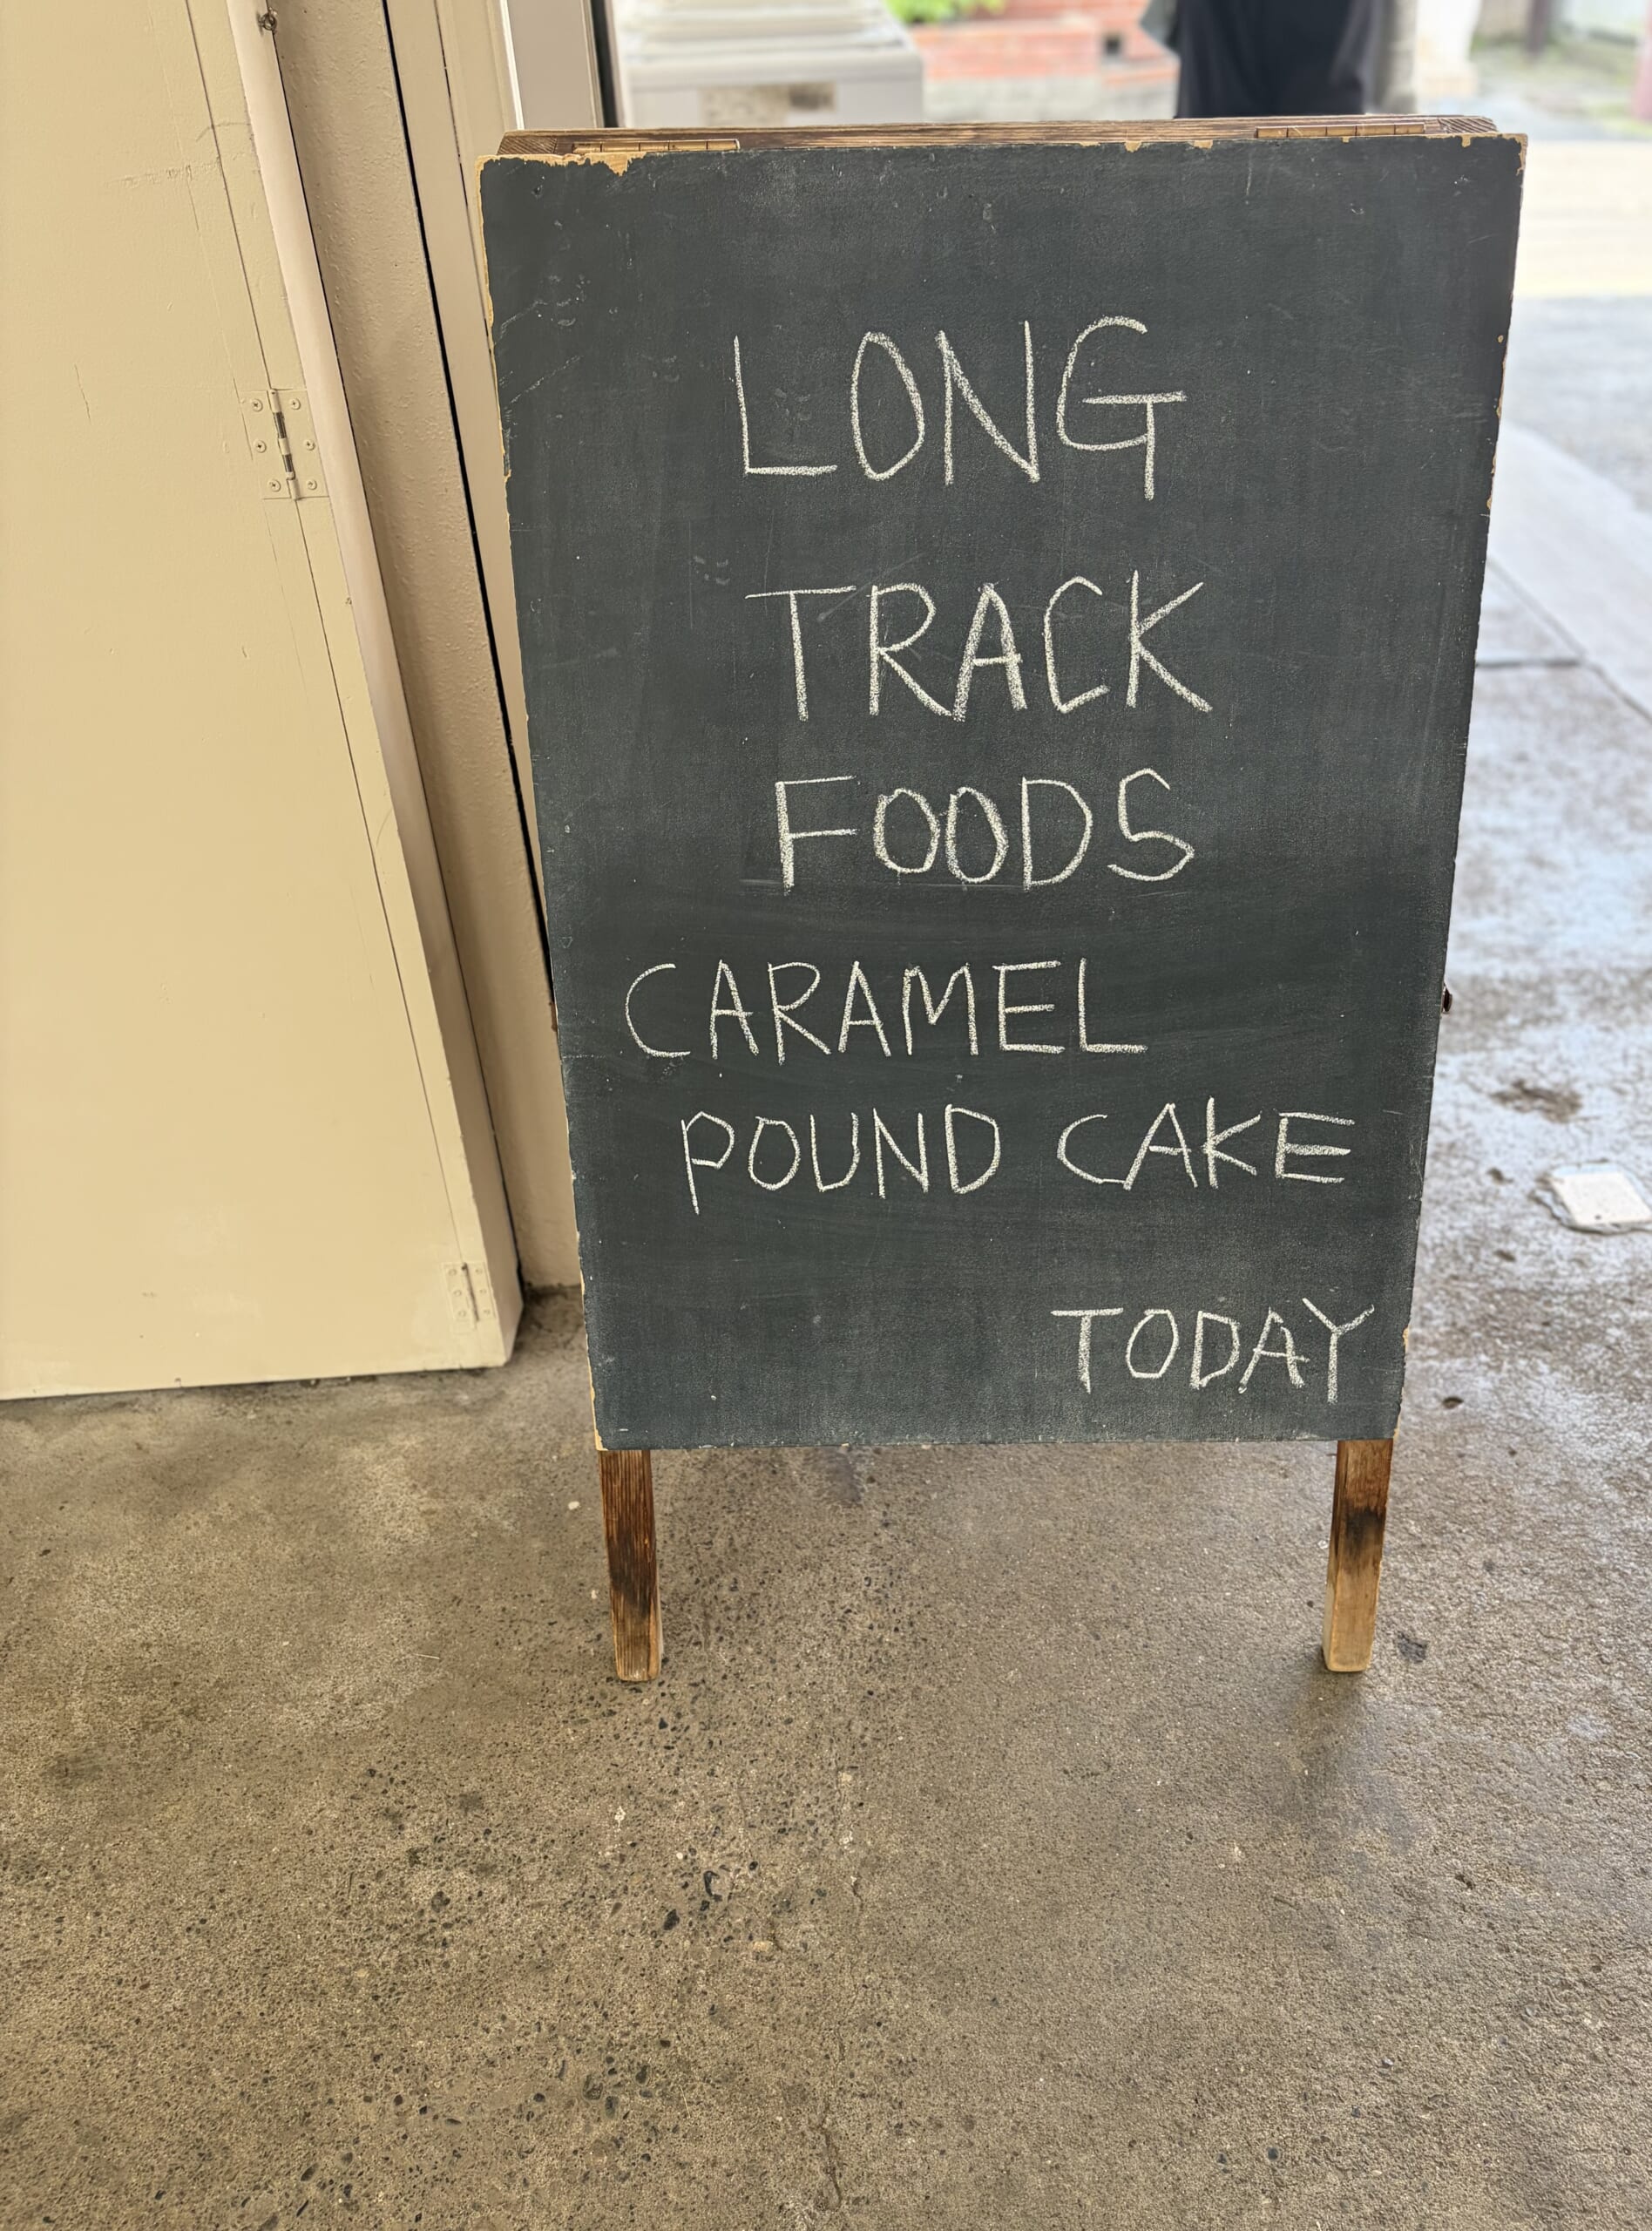 LONG
TRACK
FOODS
CARAMEL
POUND CAKE
TODAY